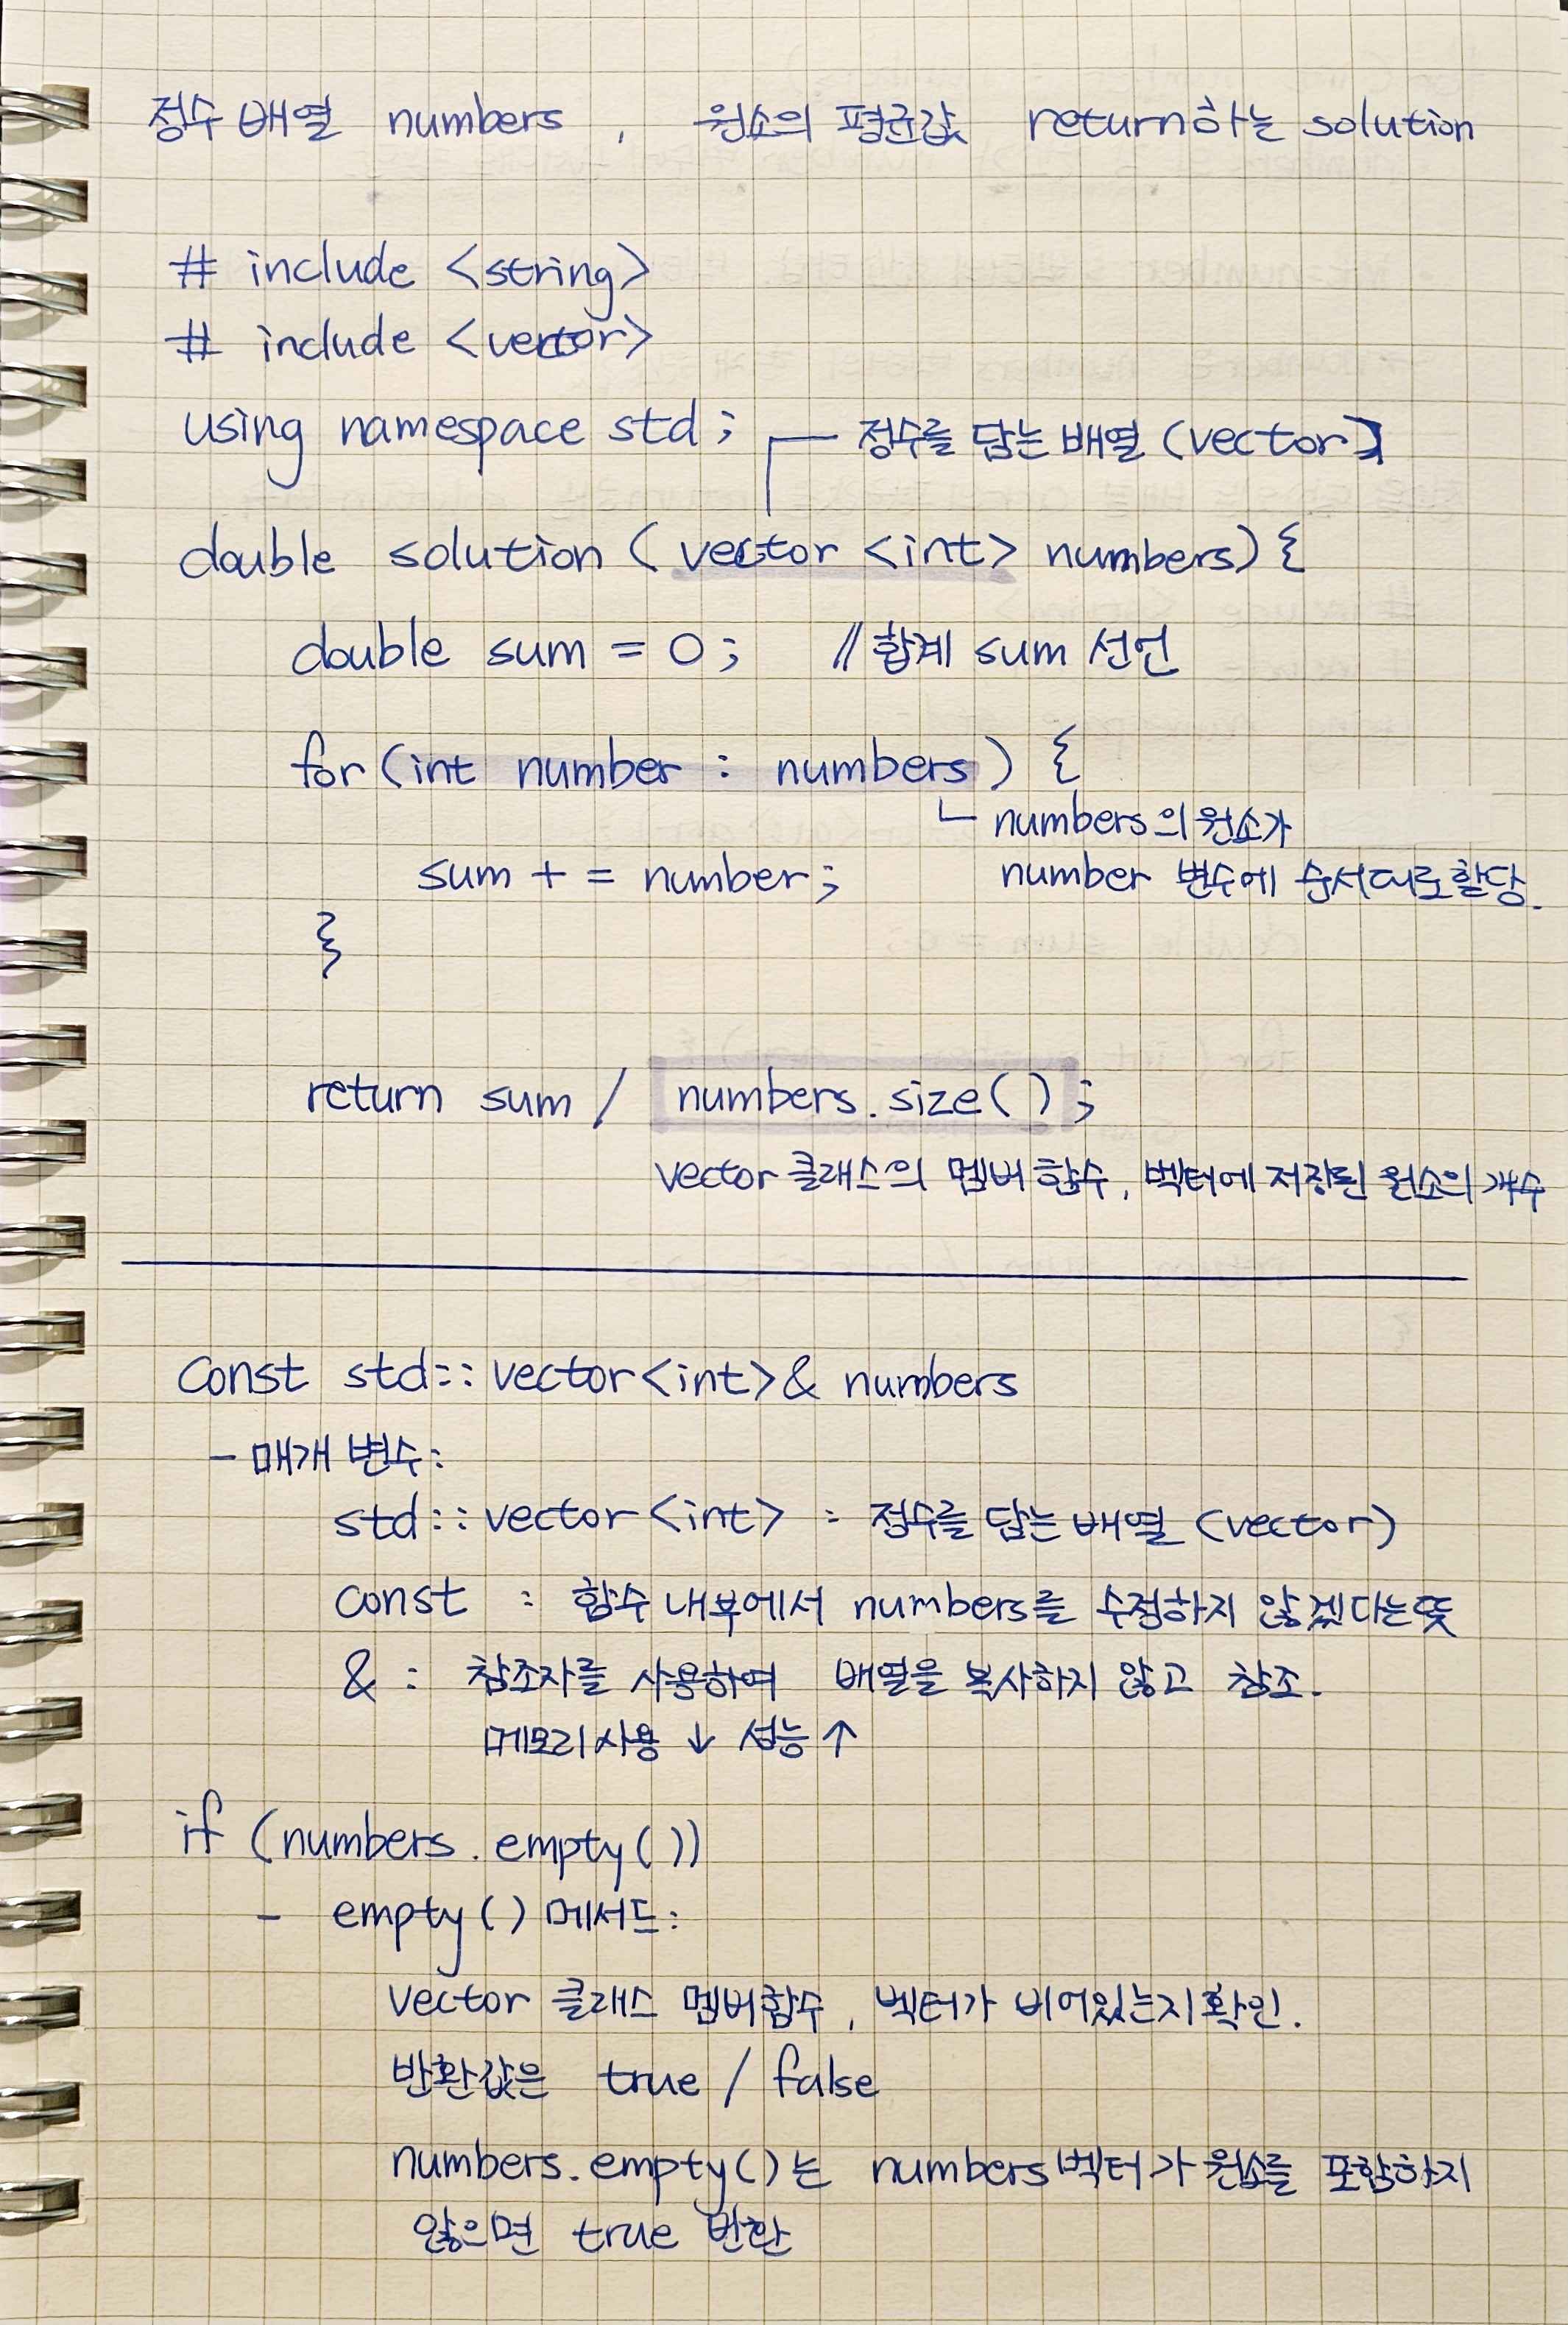 정수 배열 numbers , 원소의 평균값 return하는 solution
# include <string>
# include <vector>
using namespace std ;
정수를 담는 배열 (vector)
double solution ( vector <int> numbers) {
double sum = 0 ; // 합계 sum 선언
for (int number : numbers) {
numbers의 원소가
sum + = number ; number 변수에 순서대로 할당.
}
return sum / numbers . size ( ) ;
vector 클래스의 멤버 함수, 벡터에 저장된 원소의 개수
const std :: vector <int> & numbers
- 매개 변수 :
std :: vector <int> : 정수를 담는 배열 (vector)
const : 함수 내부에서 numbers를 수정하지 않겠다는 뜻
& : 참조자를 사용하여 배열을 복사하지 않고 참조.
메모리 사용 ↓ 성능 ↑
if (numbers . empty ( ))
- empty ( ) 메서드 :
vector 클래스 멤버 함수 , 벡터가 비어있는지 확인.
반환값은 true / false
numbers . empty ( ) 는 numbers 벡터가 원소를 포함하지
않으면 true 반환